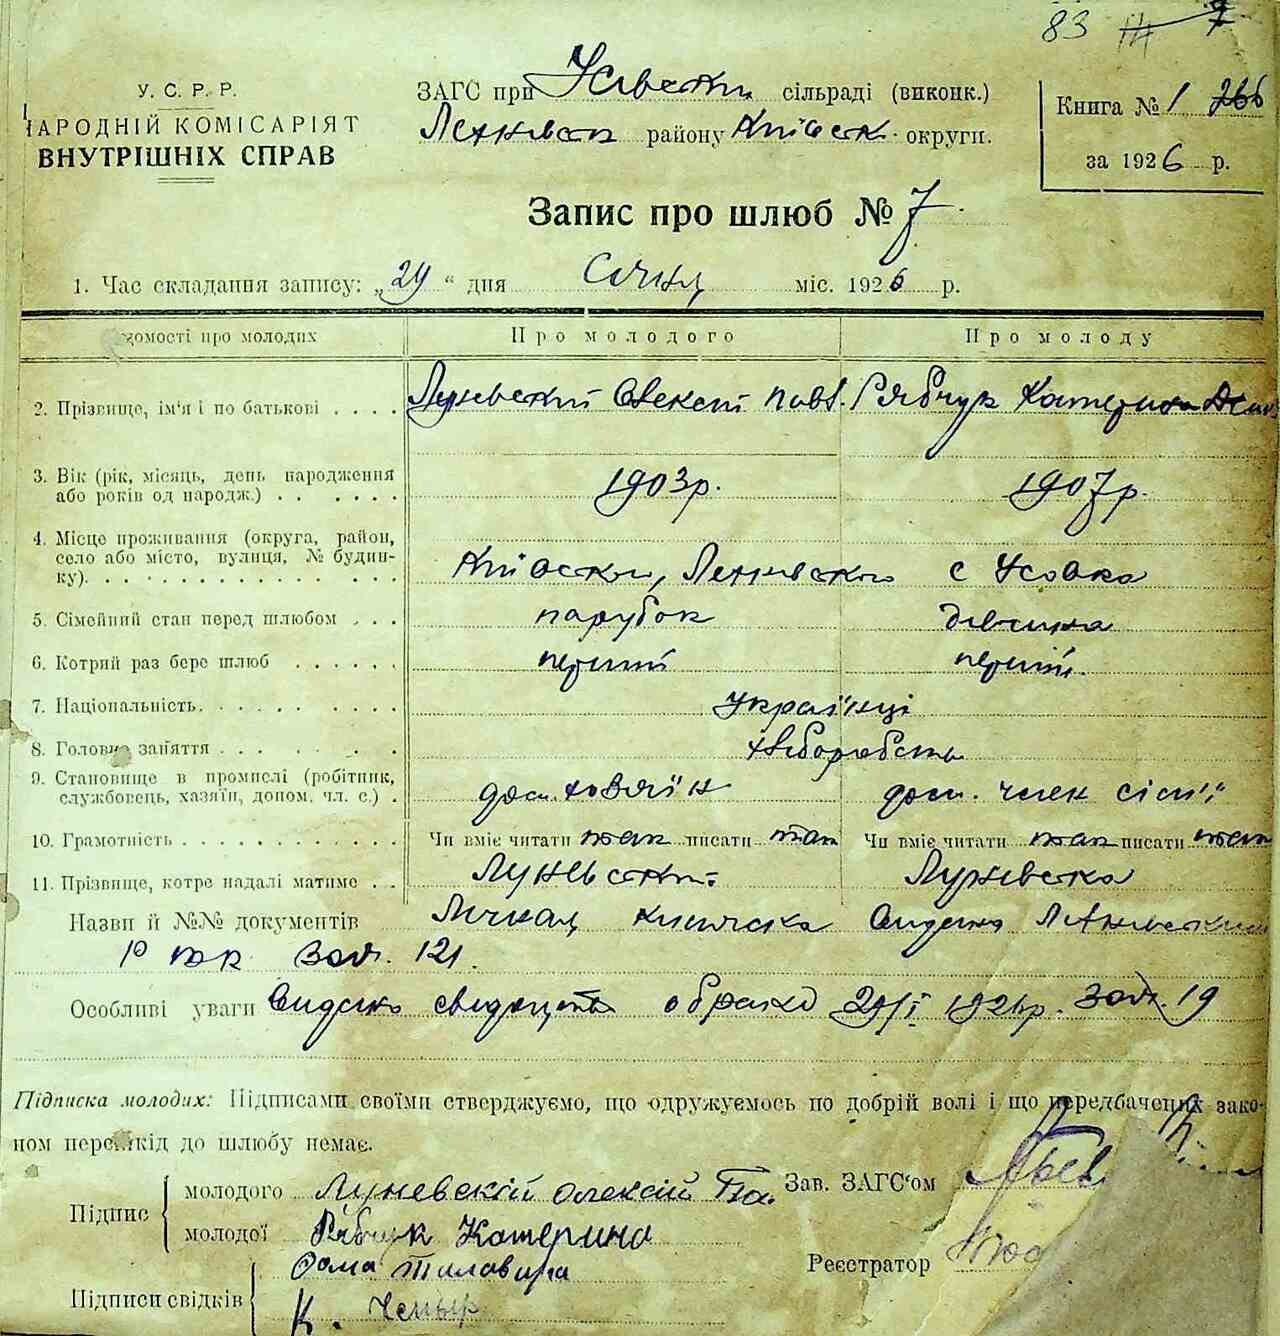 83
У. С. Р. Р.
НАРОДНІЙ КОМІСАРІЯТ
ВНУТРІШНІХ СПРАВ
ЗАГС при Усівській сільраді (виконк.)
району Київськ. округи.
Книга № 1 266
за 1926 р.
Запис про шлюб № 7
1. Час складання запису: „29“ дня Січня міс. 1926 р.
домості про молодих Про молодого Про молоду
2. Прізвище, ім'я і по батькові . . . . Луневский Олексій Павл. Рябчук Катерина
3. Вік (рік, місяць, день народження
або років од народж.) . . . . . . 1903р. 1907р.
4. Місце проживання (округа, район,
село або місто, вулиця, № будин-
ку). . . . . . . . . . . . . . Київської, с Усовка
5. Сімейний стан перед шлюбом . . . парубок дівчина
6. Котрий раз бере шлюб . . . . . . перший перший.
7. Національність. . . . . . . . . . Українці
8. Головне заняття . . . . . . . хліборобств
9. Становище в промислі (робітник,
службовець, хазяїн, допом. чл. с.) . хозяїн член сімї
10. Грамотність . . . . . . . . . . . Чи вміє читати так писати так Чи вміє читати так писати так
11. Прізвище, котре надалі матиме . . Луневський Луневска
Назви й №№ документів Лічная книжка Видана
Р В К за №. 121.
Особливі уваги Видано свидоцтв о браке 29/I 1926р. за №. 19
Підписка молодих: Підписами своїми стверджуємо, що одружуємось по добрій волі і що передбачених зако-
ном перешкід до шлюбу немає.
Підпис молодого Луневскій Олексій Па. Зав. ЗАГС'ом
молодої Рябчук Катерина
Реєстратор
Підписи свідків Хома
К.